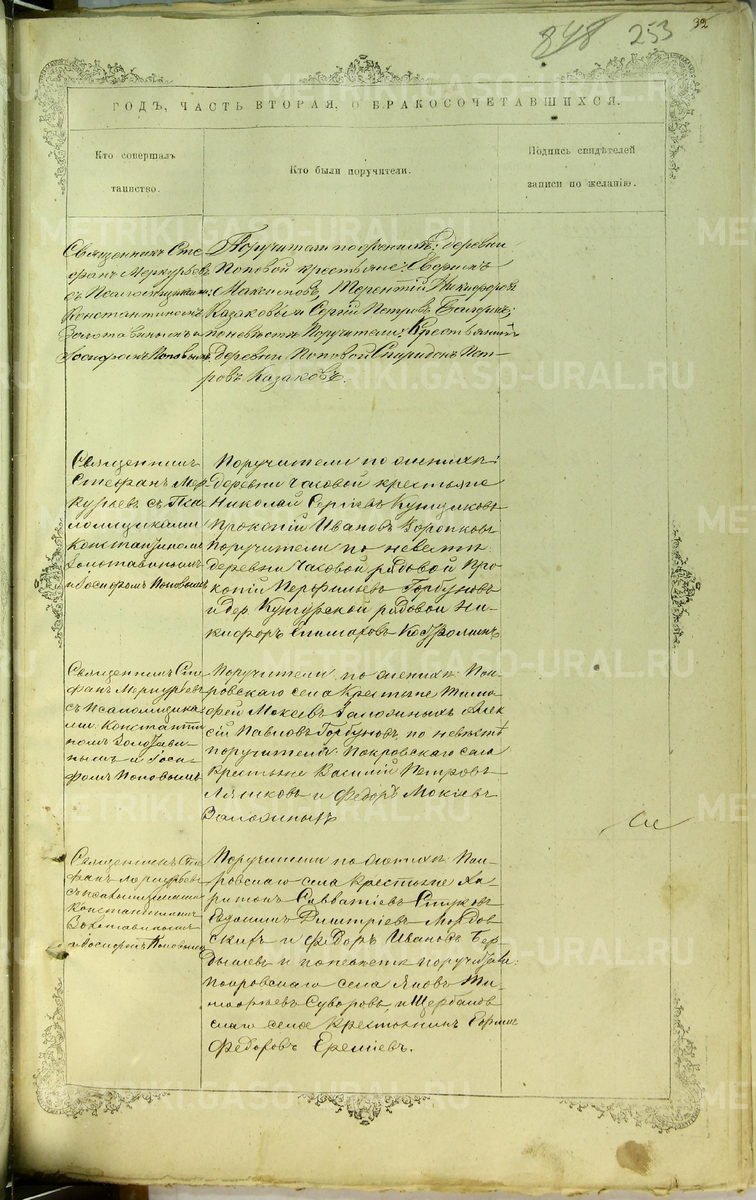 848 253 32
ГОДЪ, ЧАСТЬ ВТОРАЯ, О БРАКОСОЧЕТАВШИХСЯ.
Кто совершалъ
таинство.
Кто были поручители.
Подпись свидѣтелей
записи по желанію.
Священникъ Сте
фанъ Меркурьевъ
съ Псаломщиками:
Константиномъ
Золотавинымъ и
Іосифомъ Поповымъ
Поручители по женихѣ: деревни
Поповой крестьяне:
Максимовъ, Терентій Никифоровъ
Казаковы и Сергій Петровъ
по невѣстѣ Поручители: Крестьянинъ
Деревни Поповой Спиридонъ Пет-
ровъ Казаковъ.
Священникъ
Стефанъ Мер
курьевъ съ Пса
ломщиками
Константиномъ
Золотавинымъ
и Іосифомъ Поповымъ
Поручители по женихѣ:
деревни Часовой крестьяне
Николай Сергіевъ
Прокопій Ивановъ
поручители по невѣстѣ
деревни Часовой рядовой Про
копій Перфильевъ Горбуновъ
и дер. Кунгурской рядовой Ни-
кифоръ Костроминъ
Священникъ Сте
фанъ Меркурьевъ
съ псаломщика
ми: Константи
номъ Золотави
нымъ и Іоси-
фомъ Поповымъ
Поручители по женихѣ: Пок
ровскаго села Крестьяне Тимо
фей Мокеевъ Алек
сій Павловъ Горбуновъ по невѣстѣ
поручители: Покровскаго села
Крестьяне Василій Петровъ
и Федоръ Мокіевъ
Священникъ Сте
фанъ Меркурьевъ
съ псаломщиками
Константиномъ
Золотавинымъ
и Іосифомъ Поповымъ
Поручители по женихѣ: Пок
ровскаго села Крестьяне Ха
ритонъ Савватіевъ
Евдокимъ Димитріевъ
и Федоръ Ивановъ Бер
дышевъ и по невѣстѣ поручители:
Покровскаго села Яковъ Ти-
мофеевъ Суворовъ, и Щербаков
скаго села Крестьянинъ
Федоровъ Еремѣевъ.
METRIKI.GASO-URAL.RU